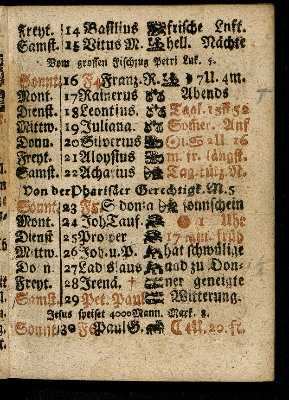 Freyt. 14 Basilius frische Luft.
Samst. 15 Vitus M. hell. Nächte
Vom grossen Fischzug Petri Luk. 5.
Sonnt. 16 F4 Franz. R. 7 U. 4 m.
Mont. 17 Rainerus Abends
Dienst. 18 Leontius. Tagl. 15 St 52
Mittw. 19 Juliana. Somer. Anf
Donn. 20 Silverius 2 U. 16
Freyt. 21 Aloysius m. fr. längst.
Samst. 22 Achatius Tag. kürz. N.
Von der Pharisäer Gerechtigk. M. 5
Sonnt. 23 F5 Sonnschein
Mont. 24 Joh Tauf. 1 Uhr
Dienst 25 Prosper 17 m. früh
Mittw. 26 Joh. u. P. hat schwülge
Don n. 27 Ladislaus und zu Don-
Freyt. 28 Irenä. † ner geneigte
Samst. 29 Pet. Paul Witterung.
Jesus speiset 4000 Mann. Mark. 8.
Sonnt. 30 F Paul G. 20. st.